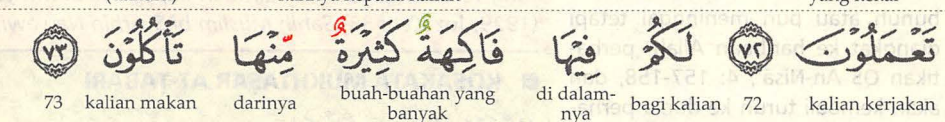 تَعْمَلُوْنَ ﴿٧٢﴾ لَكُمْ فِيْهَا فَاكِهَةٌ كَثِيْرَةٌ مِّنْهَا تَأْكُلُوْنَ ﴿٧٣﴾
kalian kerjakan 72 bagi kalian di dalam-nya buah-buahan yang banyak darinya kalian makan 73